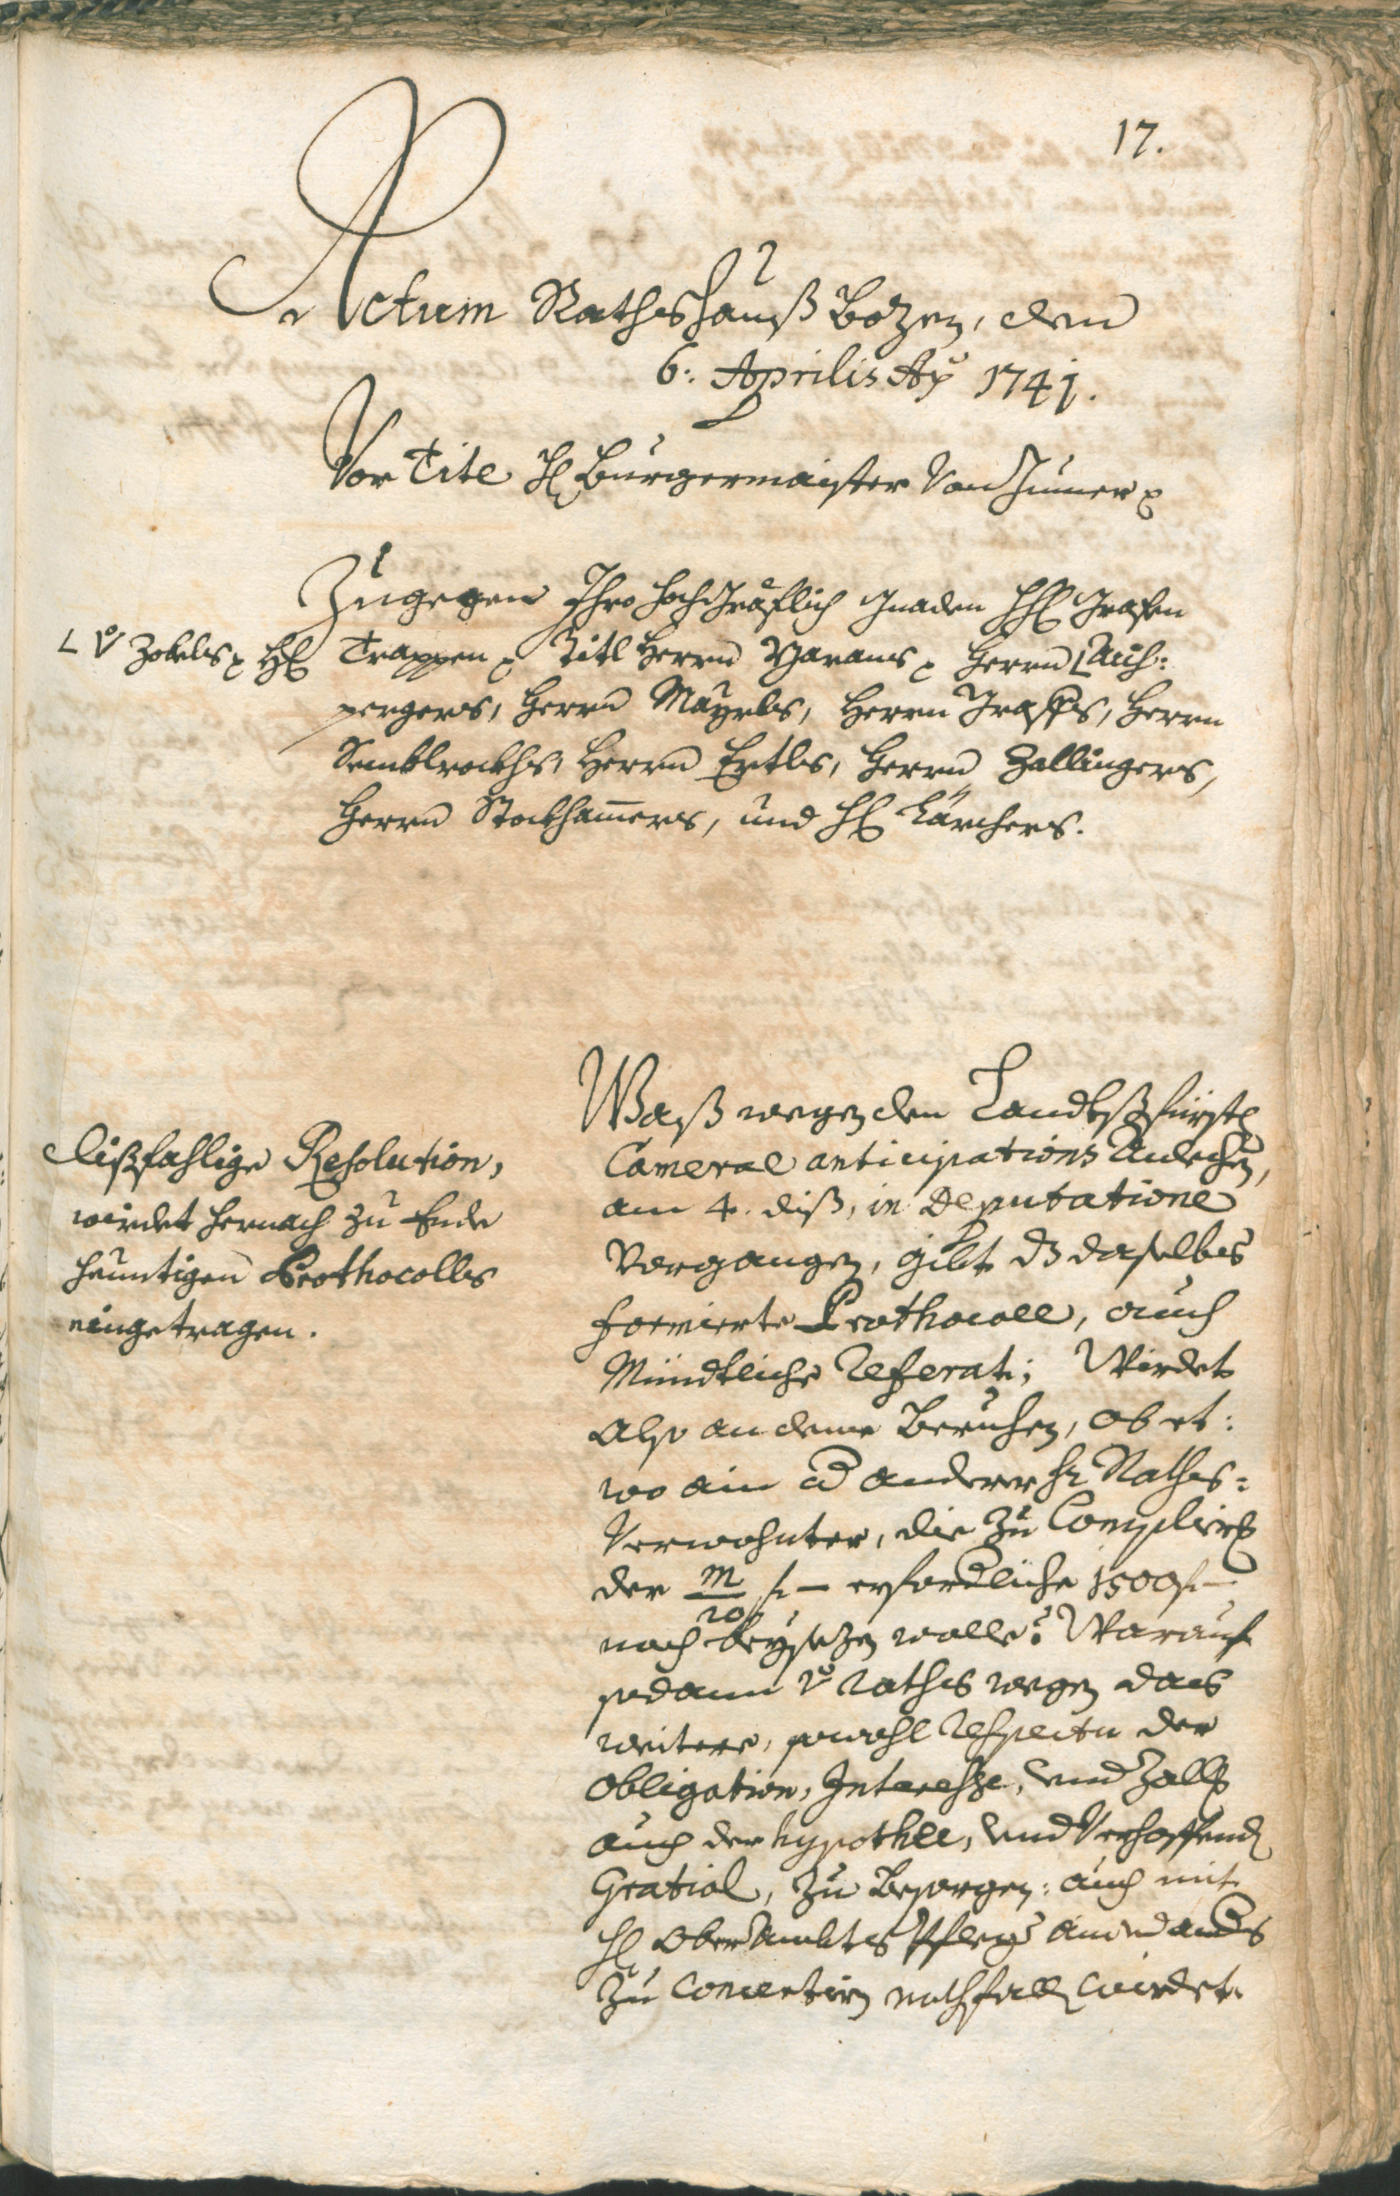 17.
Actum Rathshauß Bozen, den
6: Aprilis Aõ 1741.
Vor Titl H Burgermaister Von Zumer
Zugegen Ihro hochgräflich Gnaden HH Grafen
L v Zobels H
Trappen Titl Herrn Marans Herrn L Aich:
pergers, Herrn Mayrls, Herrn Graffs, Herrn
Semblrockhs, Herrn Ertls, Herrn Zallingers,
Herrn Stockhamers, und H Lärchers.
dißfahlige Resolution,
wirdet hernach zu Ende
heuntigen Prothocolls
eingetragen.
Waß wegen den Landtsfürstl
Cameral anticipations Anlehen,
am 4. diß, in Deputatione
Vorgangen, gibt dz daselbst
formierte Prothocoll, auch
Mündtliche Referat; Wirdet
also an deme Beruhen, ob et:
wo ain od anderer H Raths=
Verwohnter, die zu Complierung
der M/20 f – erforderliche 1500 f –
noch beysezen wolle? Warauf
sodann v Raths wegen das
weitere, sowohl Respectu der
Obligation, Interesse, und Zahlung
auch der hypothec, und Verhoffend
Gratial, zu besorgen: auch mit
H Ober Ambts Pfleg ain und anders
zu Concertirn nothfallt wirdet.